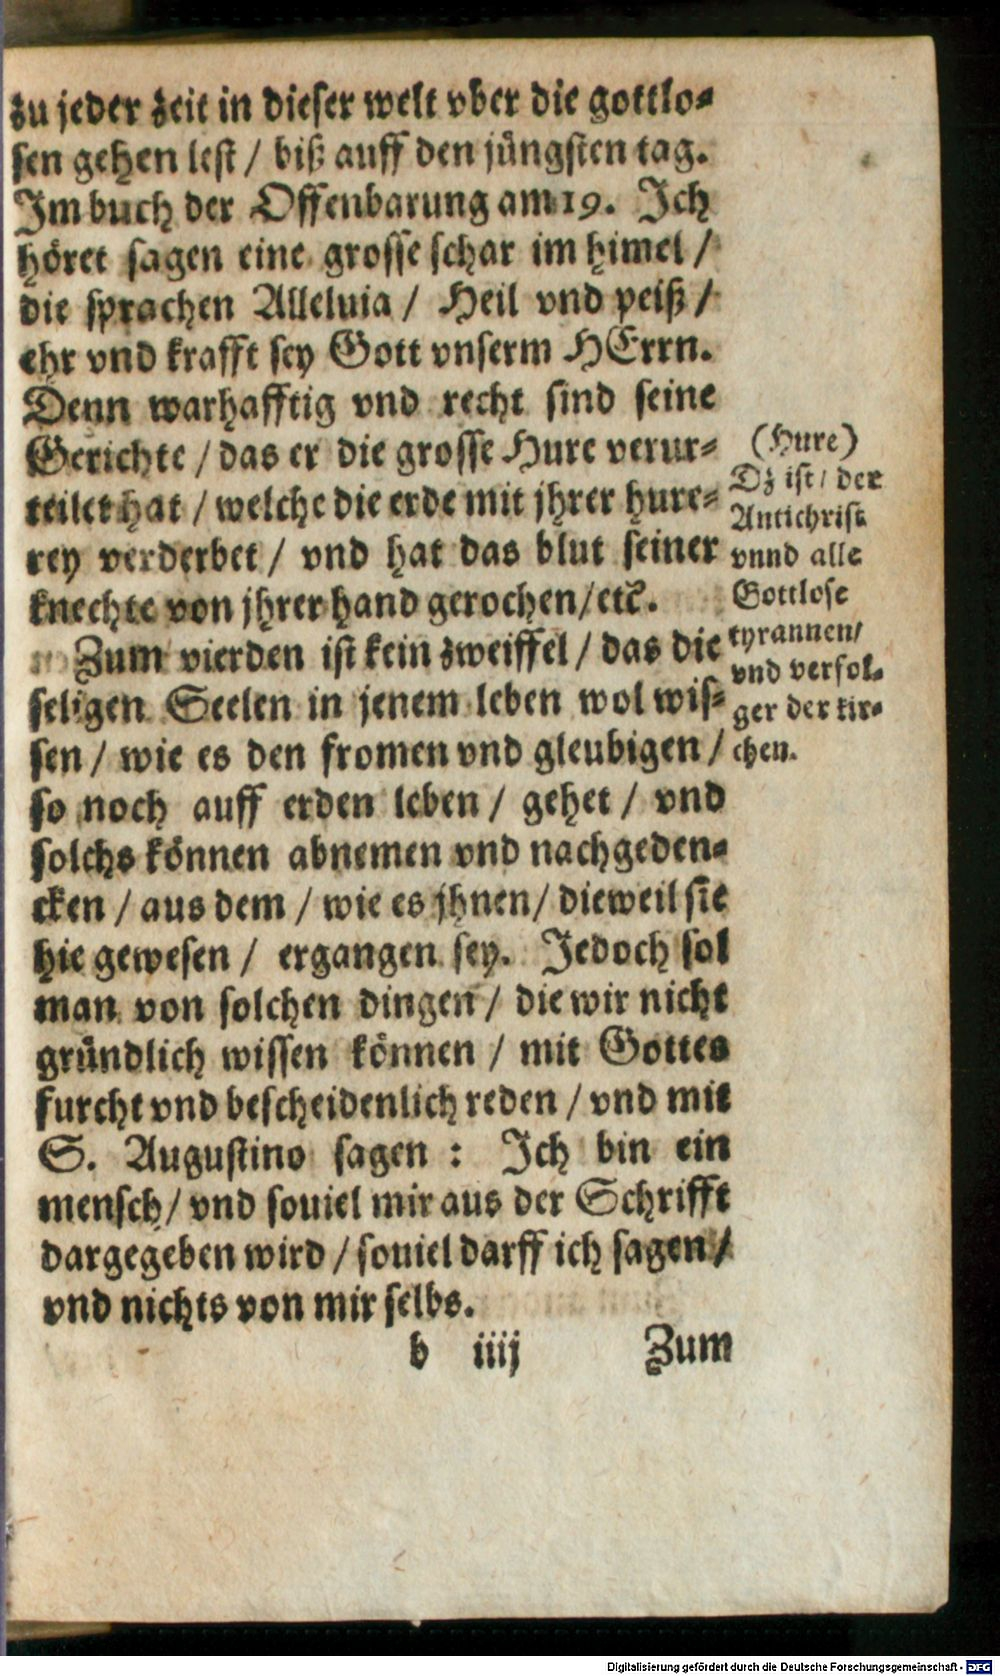 zu jeder zeit in dieser welt vber die gottlo-
sen gehen lest / biß auff den jüngsten tag.
Im buch der Offenbarung am 19. Ich
höret sagen eine grosse schar im himel /
die sprachen Alleluia / Heil vnd peiß /
ehr vnd krafft sey Gott vnserm HErrn.
Denn warhafftig vnd recht sind seine
Gerichte / das er die grosse Hure verur-
teilet hat / welche die erde mit jhrer hure-
rey verderbet / vnd hat das blut seiner
knechte von jhrer hand gerochen / etc.
Zum vierden ist kein zweiffel / das die
seligen Seelen in jenem leben wol wis-
sen / wie es den fromen vnd gleubigen /
so noch auff erden leben / gehet / vnd
solchs können abnemen vnd nachgeden-
cken / aus dem / wie es jhnen / dieweil sie
hie gewesen / ergangen sey. Jedoch sol
man von solchen dingen / die wir nicht
gründlich wissen können / mit Gottes
furcht vnd bescheidenlich reden / vnd mit
S. Augustino sagen : Ich bin ein
mensch / vnd souiel mir aus der Schrifft
dargegeben wird / souiel darff ich sagen /
vnd nichts von mir selbs.
b iiij Zum
(Hure)
Dz ist / der
Antichrist
vnnd alle
Gottlose
tyrannen /
vnd verfol-
ger der kir-
chen.
Digitalisierung gefördert durch die Deutsche Forschungsgemeinschaft - DFG